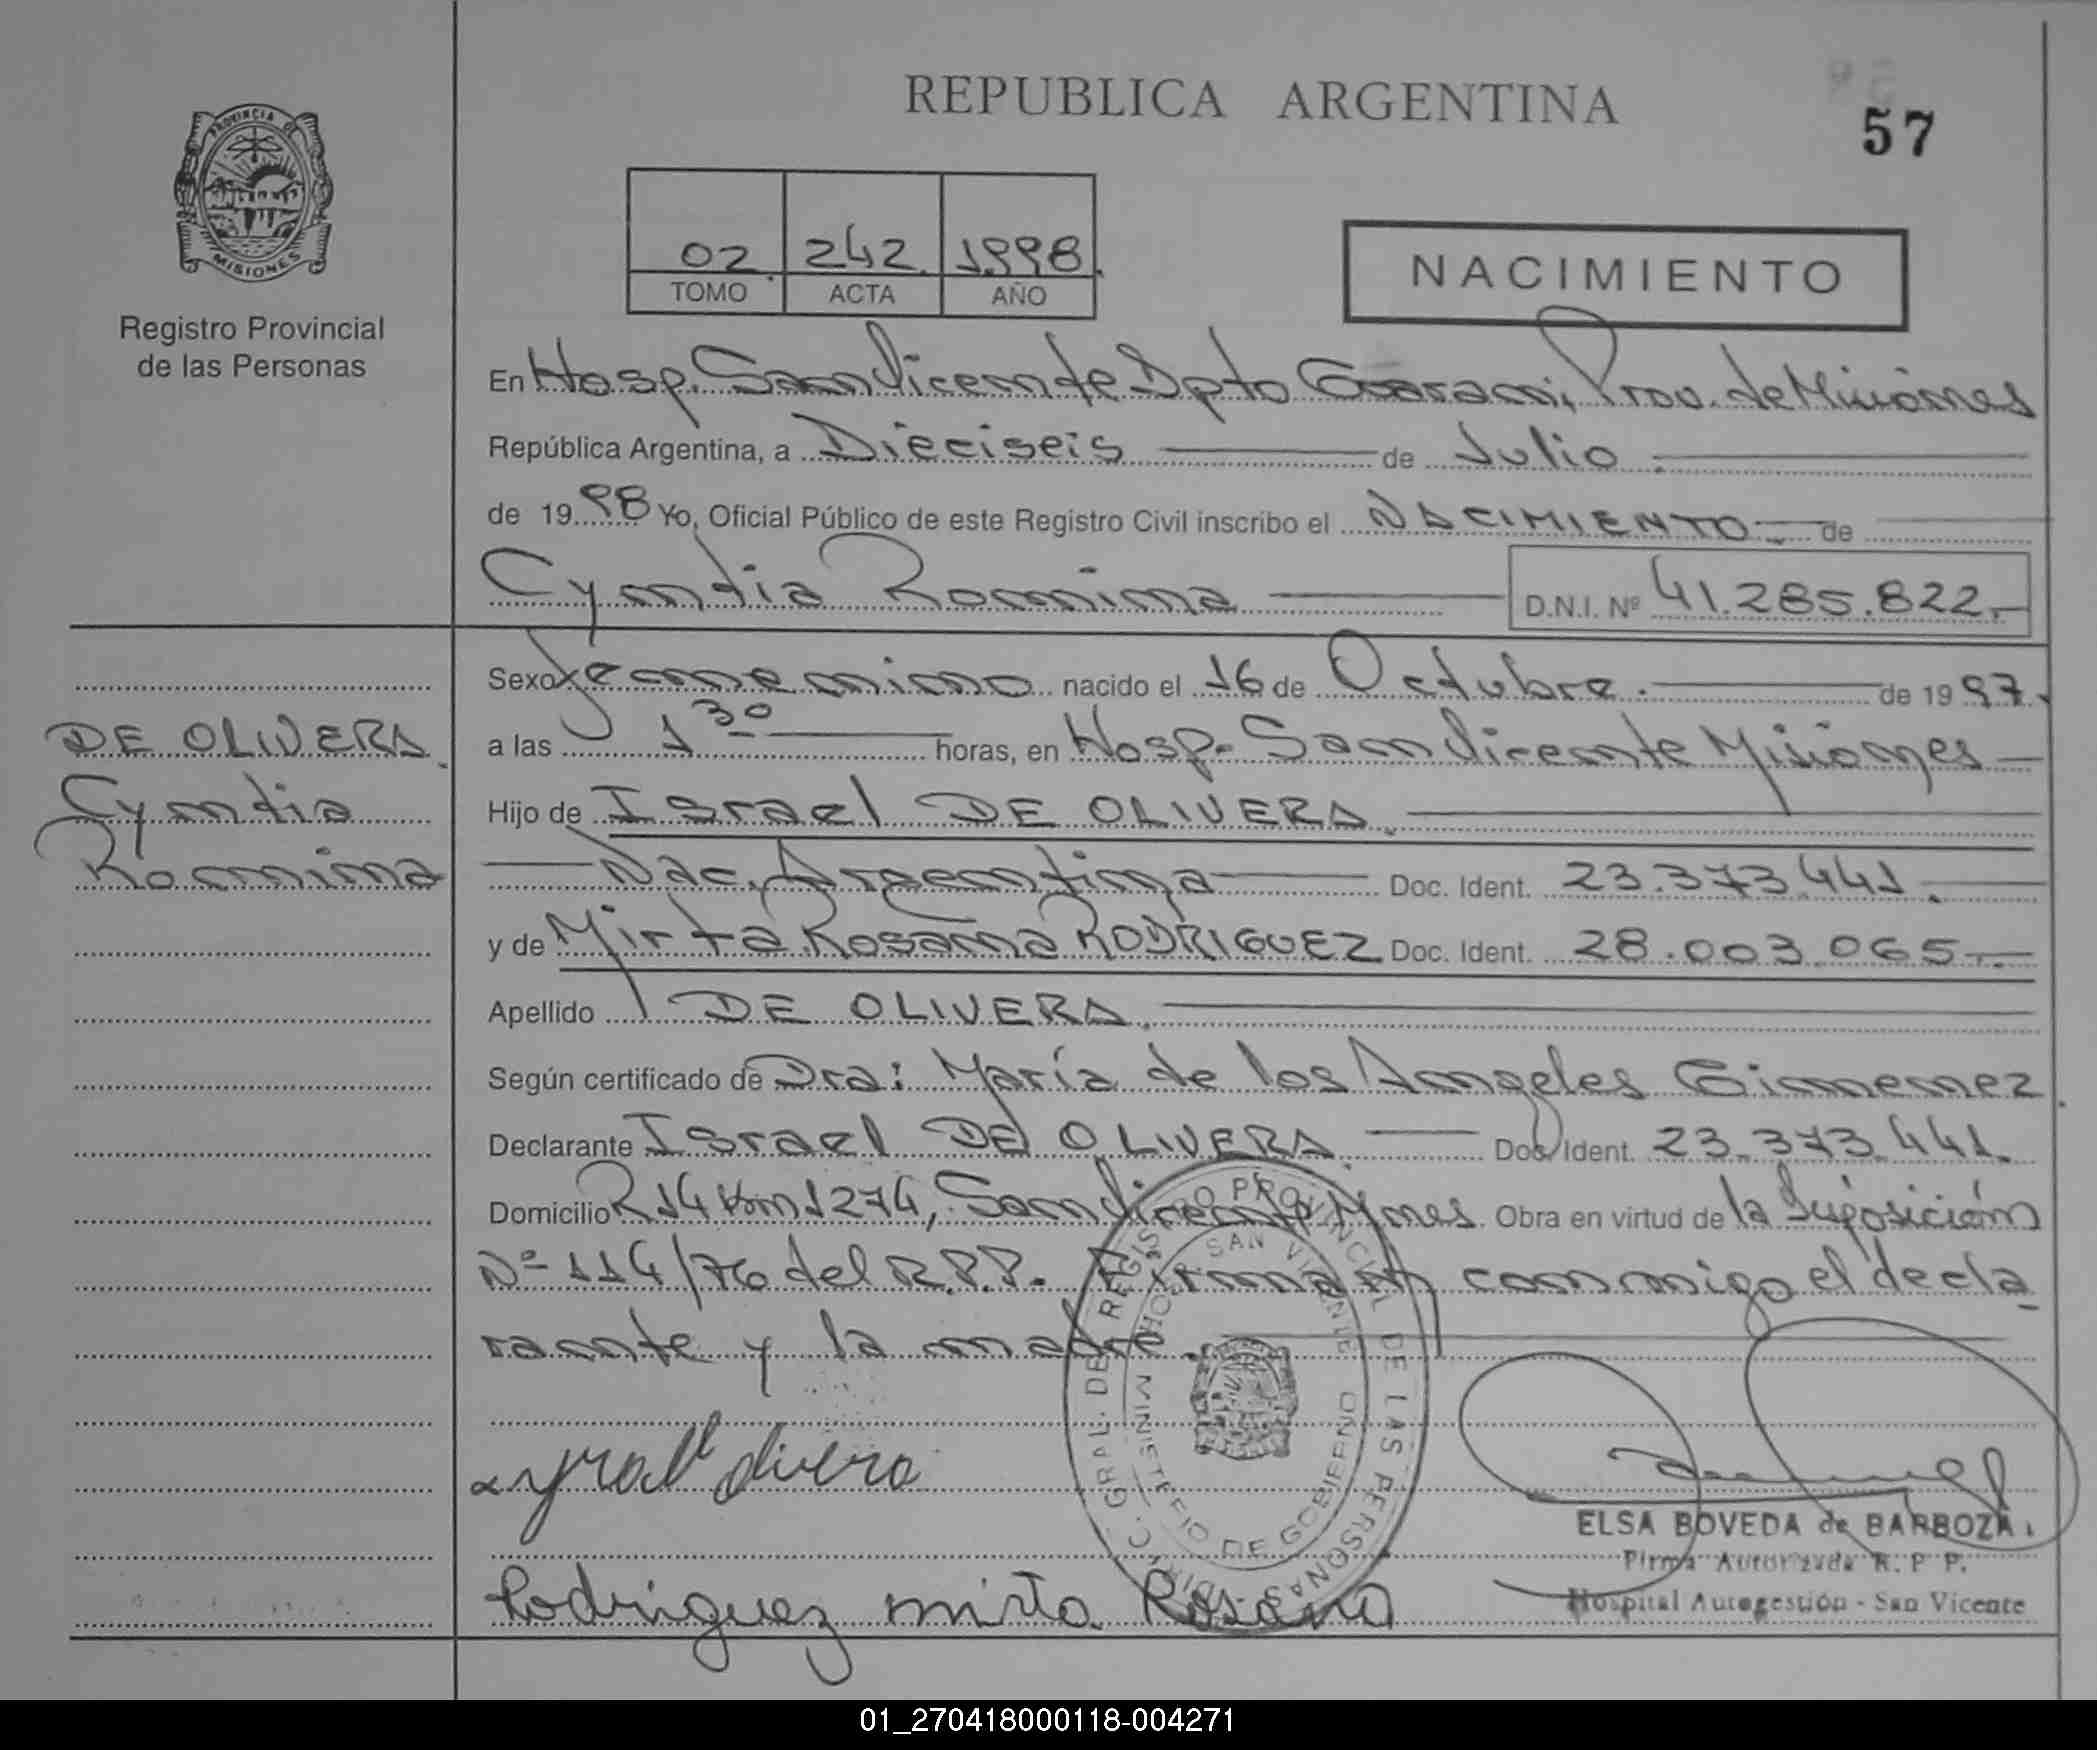 REPUBLICA ARGENTINA
57
PROVINCIA DE
MISIONES
Registro Provincial
de las Personas
02 242 1998
TOMO ACTA AÑO
NACIMIENTO
En Hosp. San Vicente Dpto Guarani, Prov. de Misiones
República Argentina, a Dieciseis de Julio
de 1998 Yo, Oficial Público de este Registro Civil inscribo el NACIMIENTO de
Cyntia Romina D.N.I. Nº 41.285.822
Sexo femenino nacido el 16 de Octubre de 1997
DE OLIVERA
a las 1 30 horas, en Hosp. San Vicente Misiones
Cyntia
Hijo de Israel DE OLIVERA
Romina
Nac. Argentina Doc. Ident. 23.373.441
y de Mirta Rosana RODRIGUEZ Doc. Ident. 28.003.065
Apellido DE OLIVERA
Según certificado de Dra: María de los Angeles Gimenez
Declarante Israel DE OLIVERA Doc. Ident. 23.373.441.
Domicilio R14 Km 1274, San Vicente Mnes. Obra en virtud de la Disposición
Nº 114/76 del R.P.P. Firman conmigo el decla
rante y la madre.
DIREC. GRAL. DE REGISTRO PROVINCIAL DE LAS PERSONAS
HOSP. SAN VICENTE
MINISTERIO DE GOBIERNO
ELSA BOVEDA de BARBOZA
Firma Autorizada R. P. P.
Hospital Autogestión - San Vicente
Rodriguez mirta Rosana
01_270418000118-004271